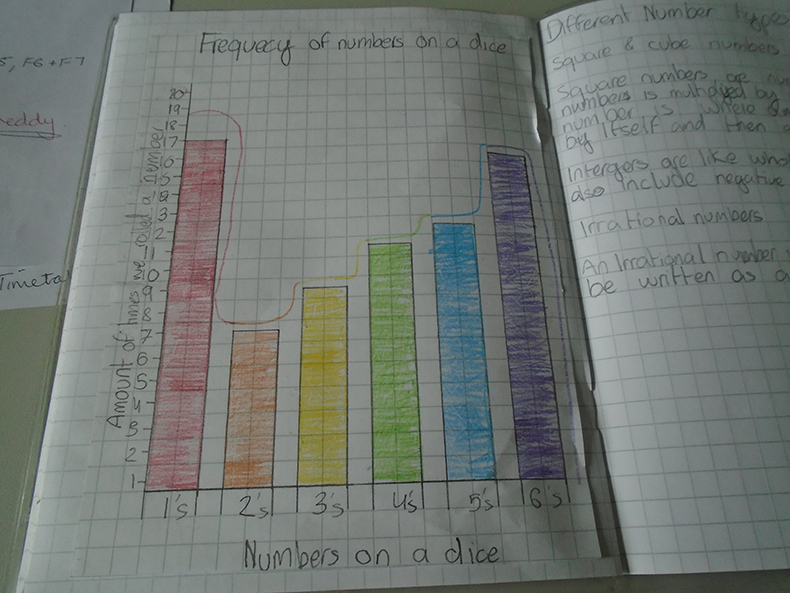 5, F6 + F7
eddy
Timeta
Frequecy of numbers on a dice
Amount of times we rolled a number
20
19
18
17
16
15
14
13
12
11
10
9
8
7
6
5
4
3
2
1
1's 2's 3's 4's 5's 6's
Numbers on a dice
Different Number types
Square & cube numbers
Square numbers are nu
numbers is multiplyed by
number is where
by itself and then a
Intergers are like who
also include negative
Irrational numbers
An Irrational number
be written as a